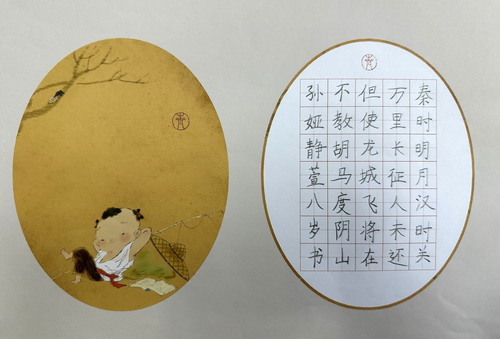 秦时明月汉时关
万里长征人未还
但使龙城飞将在
不教胡马度阴山
孙娅静萱八岁书